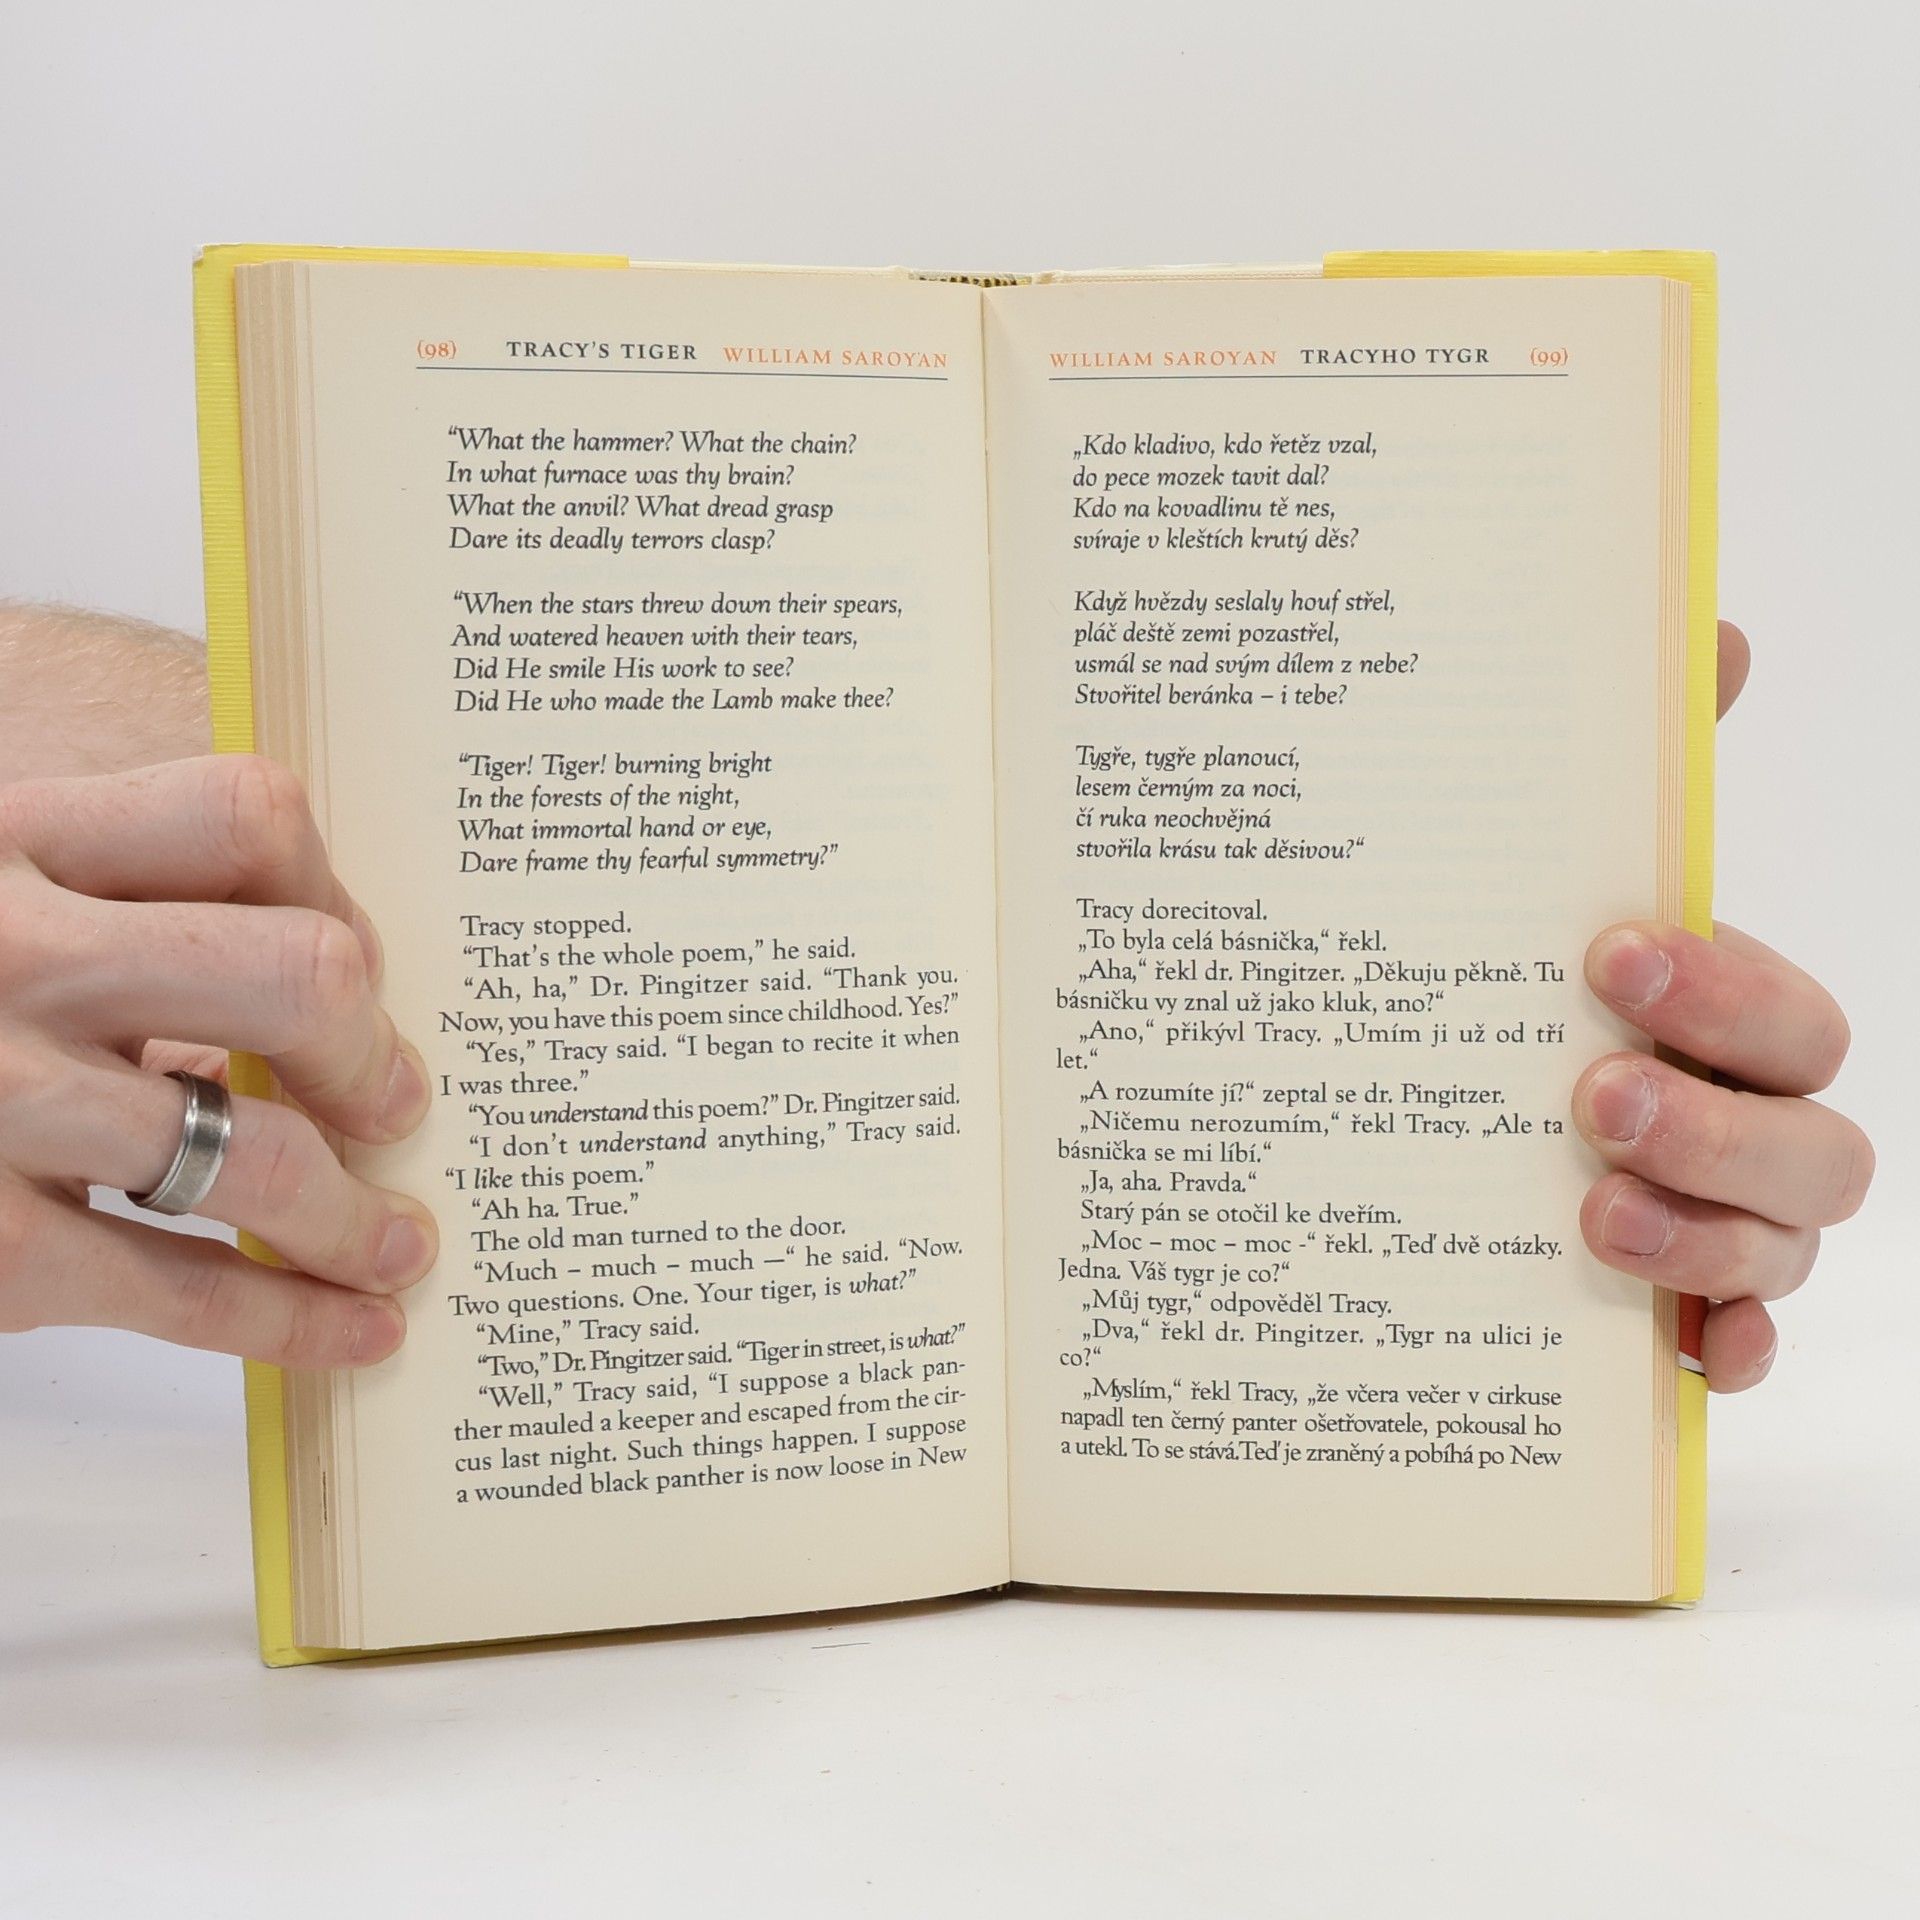 (98) TRACY'S TIGER WILLIAM SAROYAN
“What the hammer? What the chain?
In what furnace was thy brain?
What the anvil? What dread grasp
Dare its deadly terrors clasp?
“When the stars threw down their spears,
And watered heaven with their tears,
Did He smile His work to see?
Did He who made the Lamb make thee?
“Tiger! Tiger! burning bright
In the forests of the night,
What immortal hand or eye,
Dare frame thy fearful symmetry?”
Tracy stopped.
“That’s the whole poem,” he said.
“Ah, ha,” Dr. Pingitzer said. “Thank you.
Now, you have this poem since childhood. Yes?”
“Yes,” Tracy said. “I began to recite it when
I was three.”
“You understand this poem?” Dr. Pingitzer said.
“I don’t understand anything,” Tracy said.
“I like this poem.”
“Ah ha. True.”
The old man turned to the door.
“Much – much – much —“ he said. “Now.
Two questions. One. Your tiger, is what?”
“Mine,” Tracy said.
“Two,” Dr. Pingitzer said. “Tiger in street, is what?”
“Well,” Tracy said, “I suppose a black pan-
ther mauled a keeper and escaped from the cir-
cus last night. Such things happen. I suppose
a wounded black panther is now loose in New
WILLIAM SAROYAN TRACYHO TYGR (99)
„Kdo kladivo, kdo řetěz vzal,
do pece mozek tavit dal?
Kdo na kovadlinu tě nes,
svíraje v kleštích krutý děs?
Když hvězdy seslaly houf střel,
pláč deště zemi pozastřel,
usmál se nad svým dílem z nebe?
Stvořitel beránka – i tebe?
Tygře, tygře planoucí,
lesem černým za noci,
čí ruka neochvějná
stvořila krásu tak děsivou?“
Tracy dorecitoval.
„To byla celá básnička,“ řekl.
„Aha,“ řekl dr. Pingitzer. „Děkuju pěkně. Tu
básničku vy znal už jako kluk, ano?“
„Ano,“ přikývl Tracy. „Umím ji už od tří
let.“
„A rozumíte jí?“ zeptal se dr. Pingitzer.
„Ničemu nerozumím,“ řekl Tracy. „Ale ta
básnička se mi líbí.“
„Ja, aha. Pravda.“
Starý pán se otočil ke dveřím.
„Moc – moc – moc -“ řekl. „Teď dvě otázky.
Jedna. Váš tygr je co?“
„Můj tygr,“ odpověděl Tracy.
„Dva,“ řekl dr. Pingitzer. „Tygr na ulici je
co?“
„Myslím,“ řekl Tracy, „že včera večer v cirkuse
napadl ten černý panter ošetřovatele, pokousal ho
a utekl. To se stává. Teď je zraněný a pobíhá po New